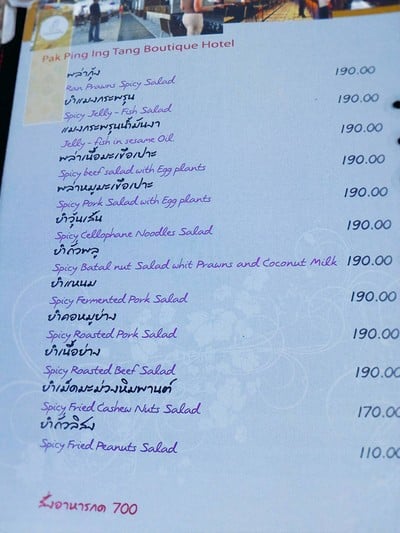 Pak Ping Ing Tang Boutique Hotel
พล่ากุ้ง
Ran Prawns Spicy Salad 190.00
ยำแมงกระพรุน
Spicy Jelly-Fish Salad 190.00
แมงกระพรุนน้ำมันงา
Jelly-fish in sesame Oil 190.00
พล่าเนื้อมะเขือเปาะ
Spicy beef salad with Egg plants 190.00
พล่าหมูมะเขือเปาะ
Spicy Pork Salad with Egg plants 190.00
ยำวุ้นเส้น
Spicy Cellophane Noodles Salad 190.00
ยำถั่วพลู
Spicy Batal nut Salad whit Prawns and Coconut Milk 190.00
ยำแหนม
Spicy Fermented Pork Salad 190.00
ยำคอหมูย่าง
Spicy Roasted Pork Salad 190.00
ยำเนื้อย่าง
Spicy Roasted Beef Salad 190.00
ยำเม็ดมะม่วงหิมพานต์
Spicy Fried Cashew Nuts Salad 170.00
ยำถั่วลิสง
Spicy Fried Peanuts Salad 110.00
สั่งอาหารกด 700